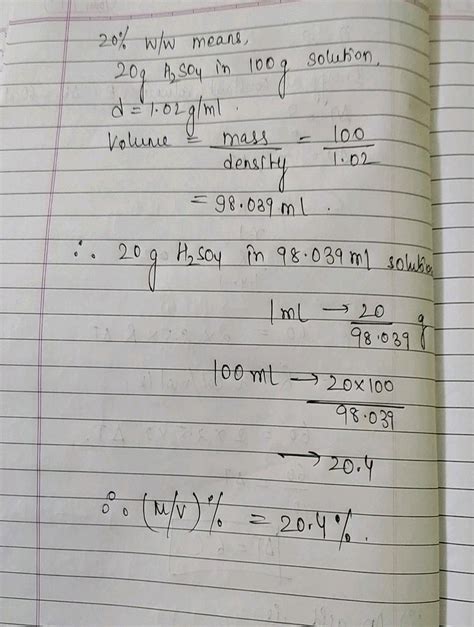 20% W/W means,
20g H₂SO4 in 100g solution,
d = 1.02 g/ml.
Volume = mass/density = 100/1.02
= 98.039 ml.
∴ 20 g H₂SO4 in 98.039 ml solution
1ml → 20/98.039 g
100 ml → 20×100/98.039
→ 20.4
∴ (M/V)% = 20.4%.